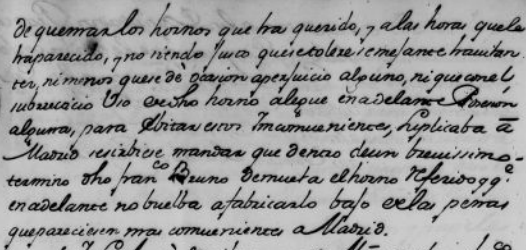 de quemar los hornos que ha querido, y a las horas que le
ha parecido, y no siendo justo que se tolere semejante
ni menos que se dè ocasion a perjuicio alguno, ni que con el
uso de dho horno alegue en adelante Posesion
alguna, para ebitar estos Incombenientes, Suplicaba à
Madrid se sirbiese mandar que dentro de un brevissimo
termino dho fran.co Bruno demuela el horno referido y q.e
en adelante no buelba a fabricarlo bajo de las penas
que pareciesen mas combenientes a Madrid.